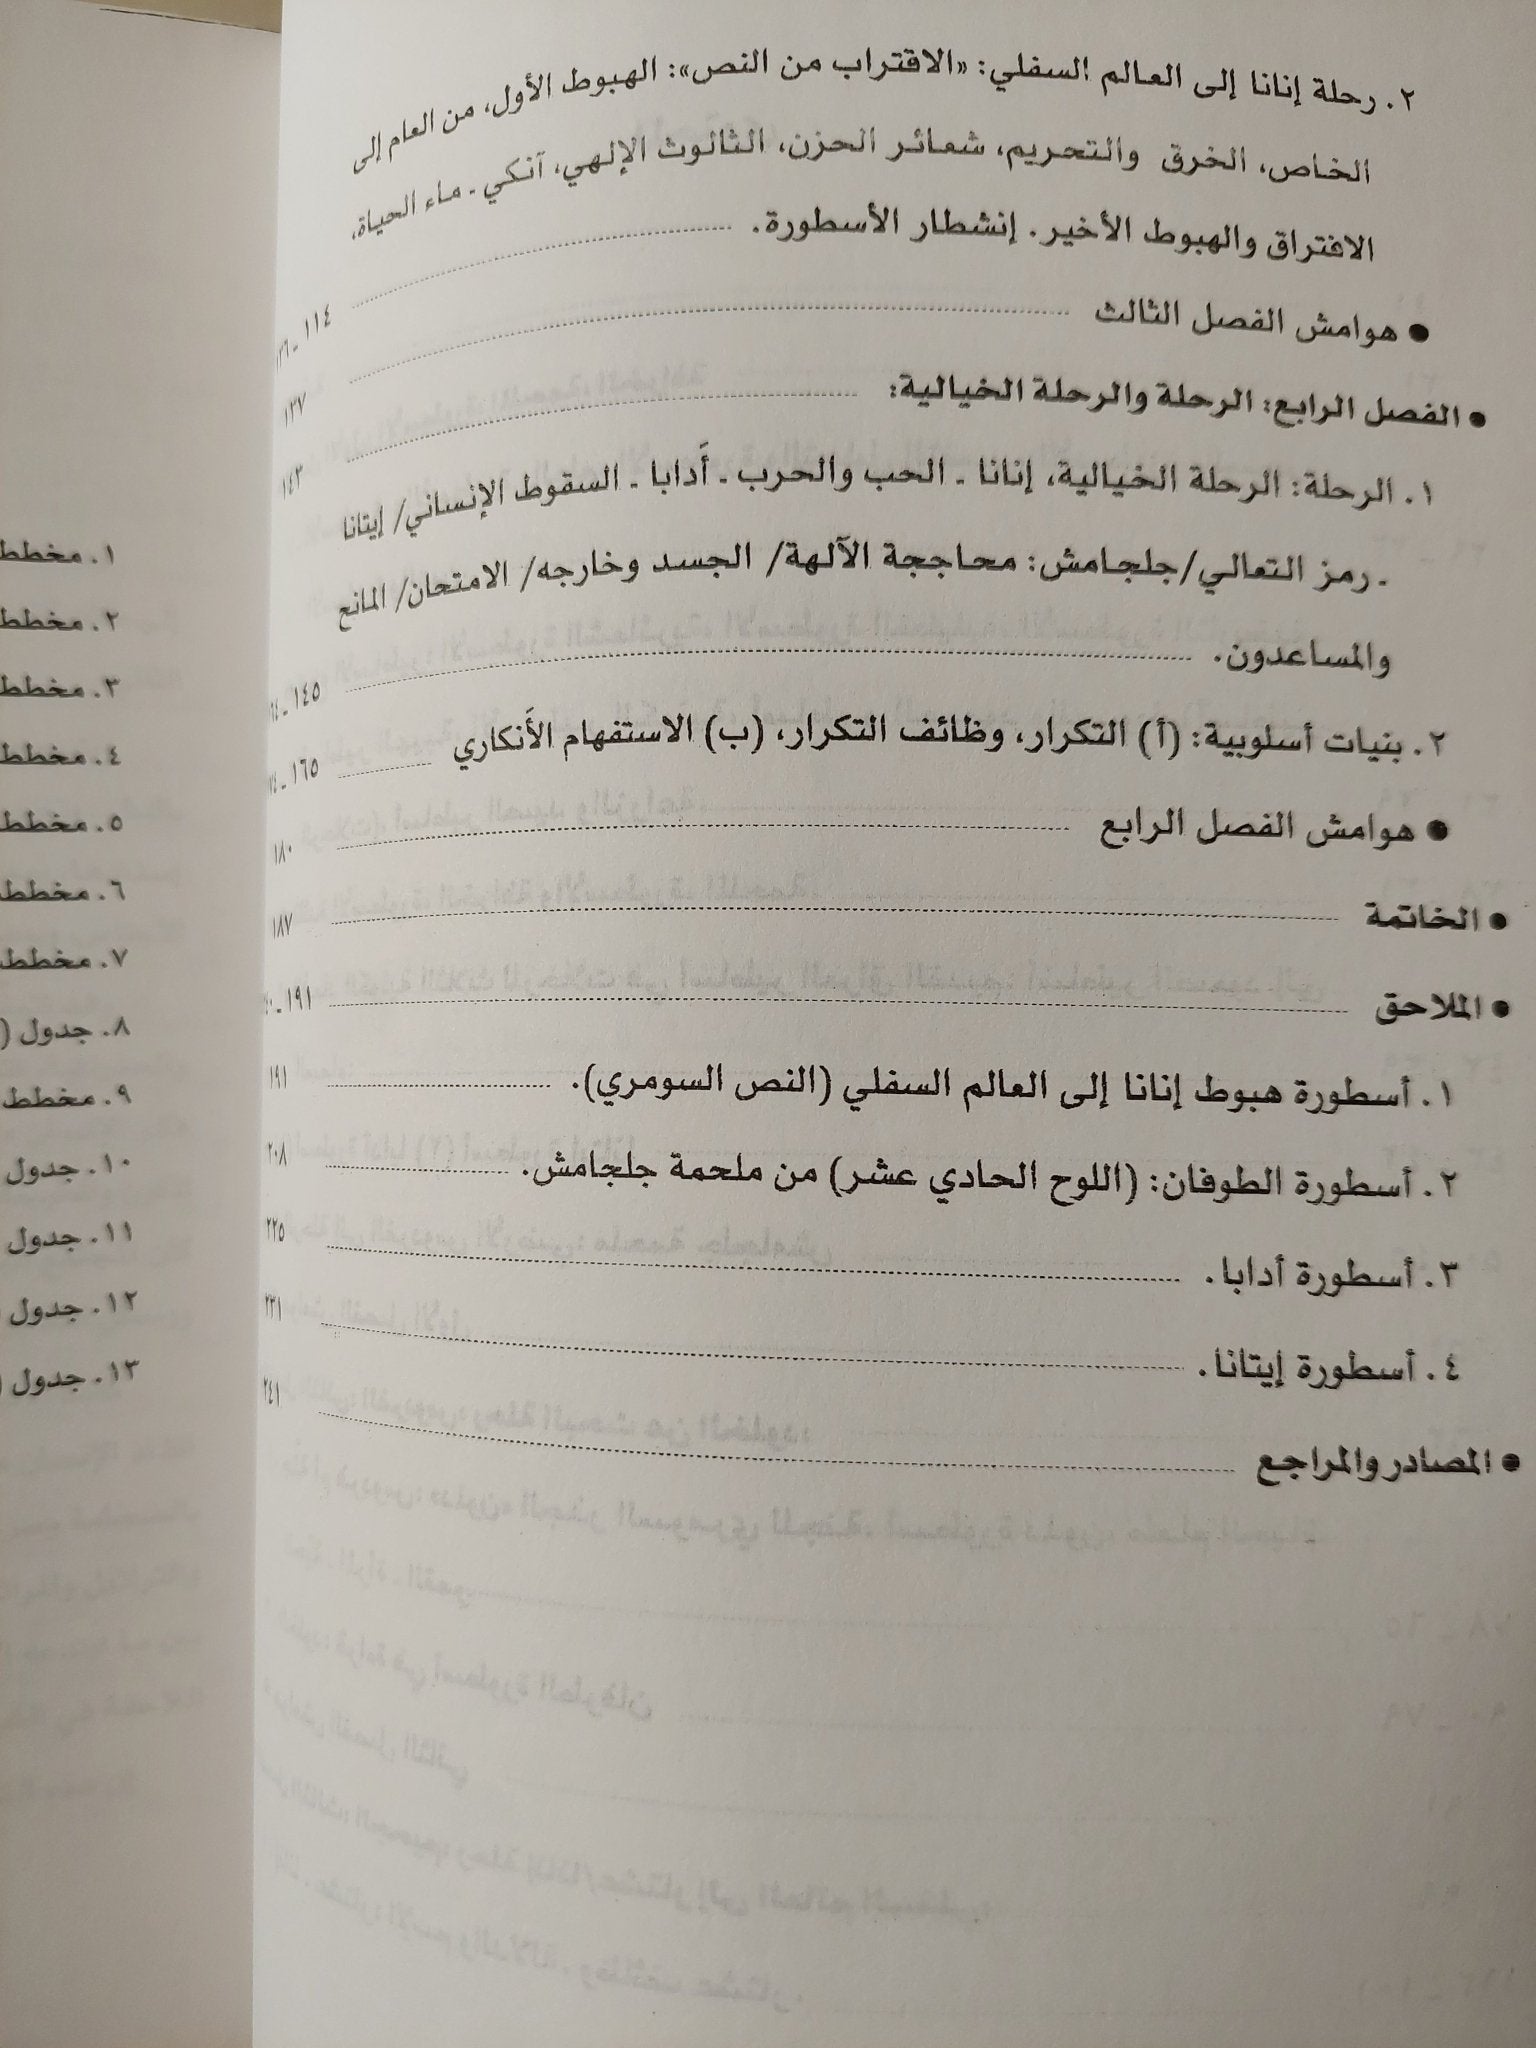 ٢. رحلة إنانا إلى العالم السفلي: «الاقتراب من النص»: الهبوط الأول، من العام إلى
الخاص، الخرق والتحريم، شعائر الحزن، الثالوث الإلهي، آنكي - ماء الحياة،
الافتراق والهبوط الأخير. إنشطار الأسطورة. ١١٤ - ١٣٦
● هوامش الفصل الثالث ١٣٧
● الفصل الرابع: الرحلة والرحلة الخيالية: ١٤٣
١. الرحلة: الرحلة الخيالية، إنانا - الحب والحرب - أَدابا - السقوط الإنساني/ إيتانا
- رمز التعالي/جلجامش: محاججة الآلهة/ الجسد وخارجه/ الامتحان/ المانع
والمساعدون. ١٤٥ -
٢. بنيات أسلوبية: (أ) التكرار، وظائف التكرار، (ب) الاستفهام الأَنكاري ١٦٥ -
● هوامش الفصل الرابع ١٨٠
● الخاتمة ١٨٧
● الملاحق ١٩١ -
١. أسطورة هبوط إنانا إلى العالم السفلي (النص السومري). ١٩١
٢. أسطورة الطوفان: (اللوح الحادي عشر) من ملحمة جلجامش. ٢٠٨
٣. أسطورة أدابا. ٢٢٥
٤. أسطورة إيتانا. ٢٣١
● المصادر والمراجع ٢٤١
١. مخطط
٢. مخطط
٣. مخطط
٤. مخطط
٥. مخطط
٦. مخطط
٧. مخطط
٨. جدول (
٩. مخطط
١٠. جدول
١١. جدول
١٢. جدول
١٣. جدول